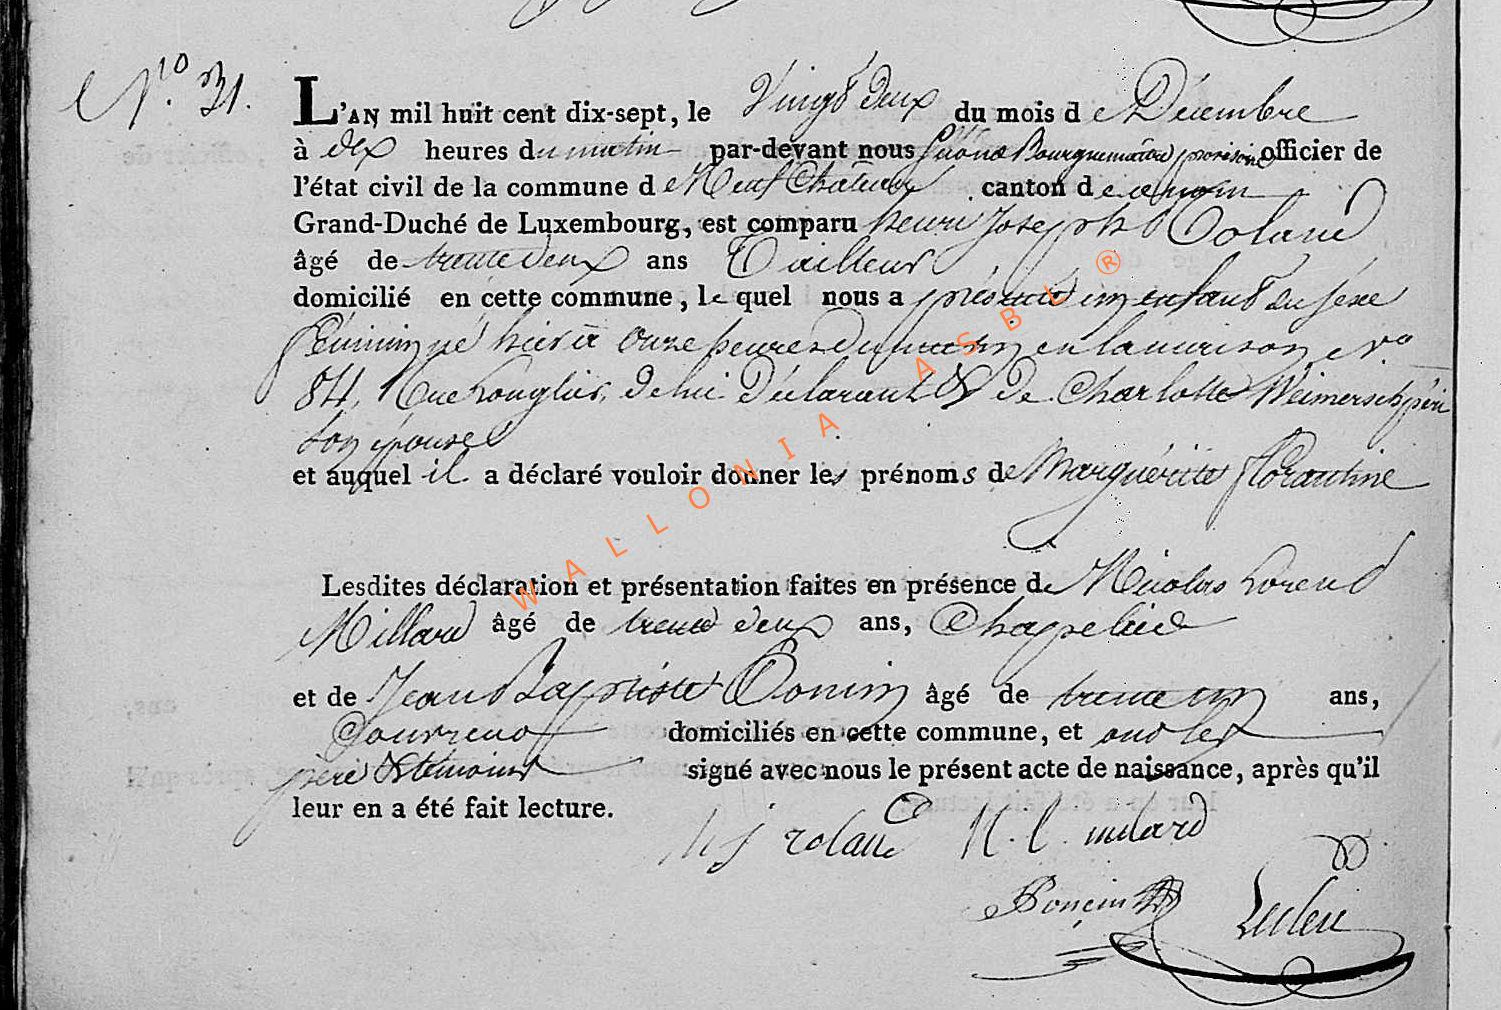 N.ro 31.
L'AN mil huit cent dix-sept, le Vingt deux du mois de Décembre
à dix heures du matin par-devant nous Bourguemaitre provisoire officier de
l'état civil de la commune de Neufchâteau canton de ce nom
Grand-Duché de Luxembourg, est comparu henri Joseph Roland
âgé de trente deux ans Tailleur
domicilié en cette commune, le quel nous a présenté un enfant du sexe
féminin né hier à onze heures du matin en la maison N.o
84, Rue Longlier, de lui Déclarant & de Charlotte Weimerskirch
son épouse
et auquel il a déclaré vouloir donner les prénoms de Marguérite florantine
Lesdites déclaration et présentation faites en présence de Nicolas Lorend
Millard âgé de trente deux ans, Chapelier
et de Jean Baptiste Poncin âgé de trente un ans,
domiciliés en cette commune, et ont les
père & témoins signé avec nous le présent acte de naissance, après qu'il
leur en a été fait lecture.
h j roland N. l. milard
Poncin
WALLONIA ASBL ®